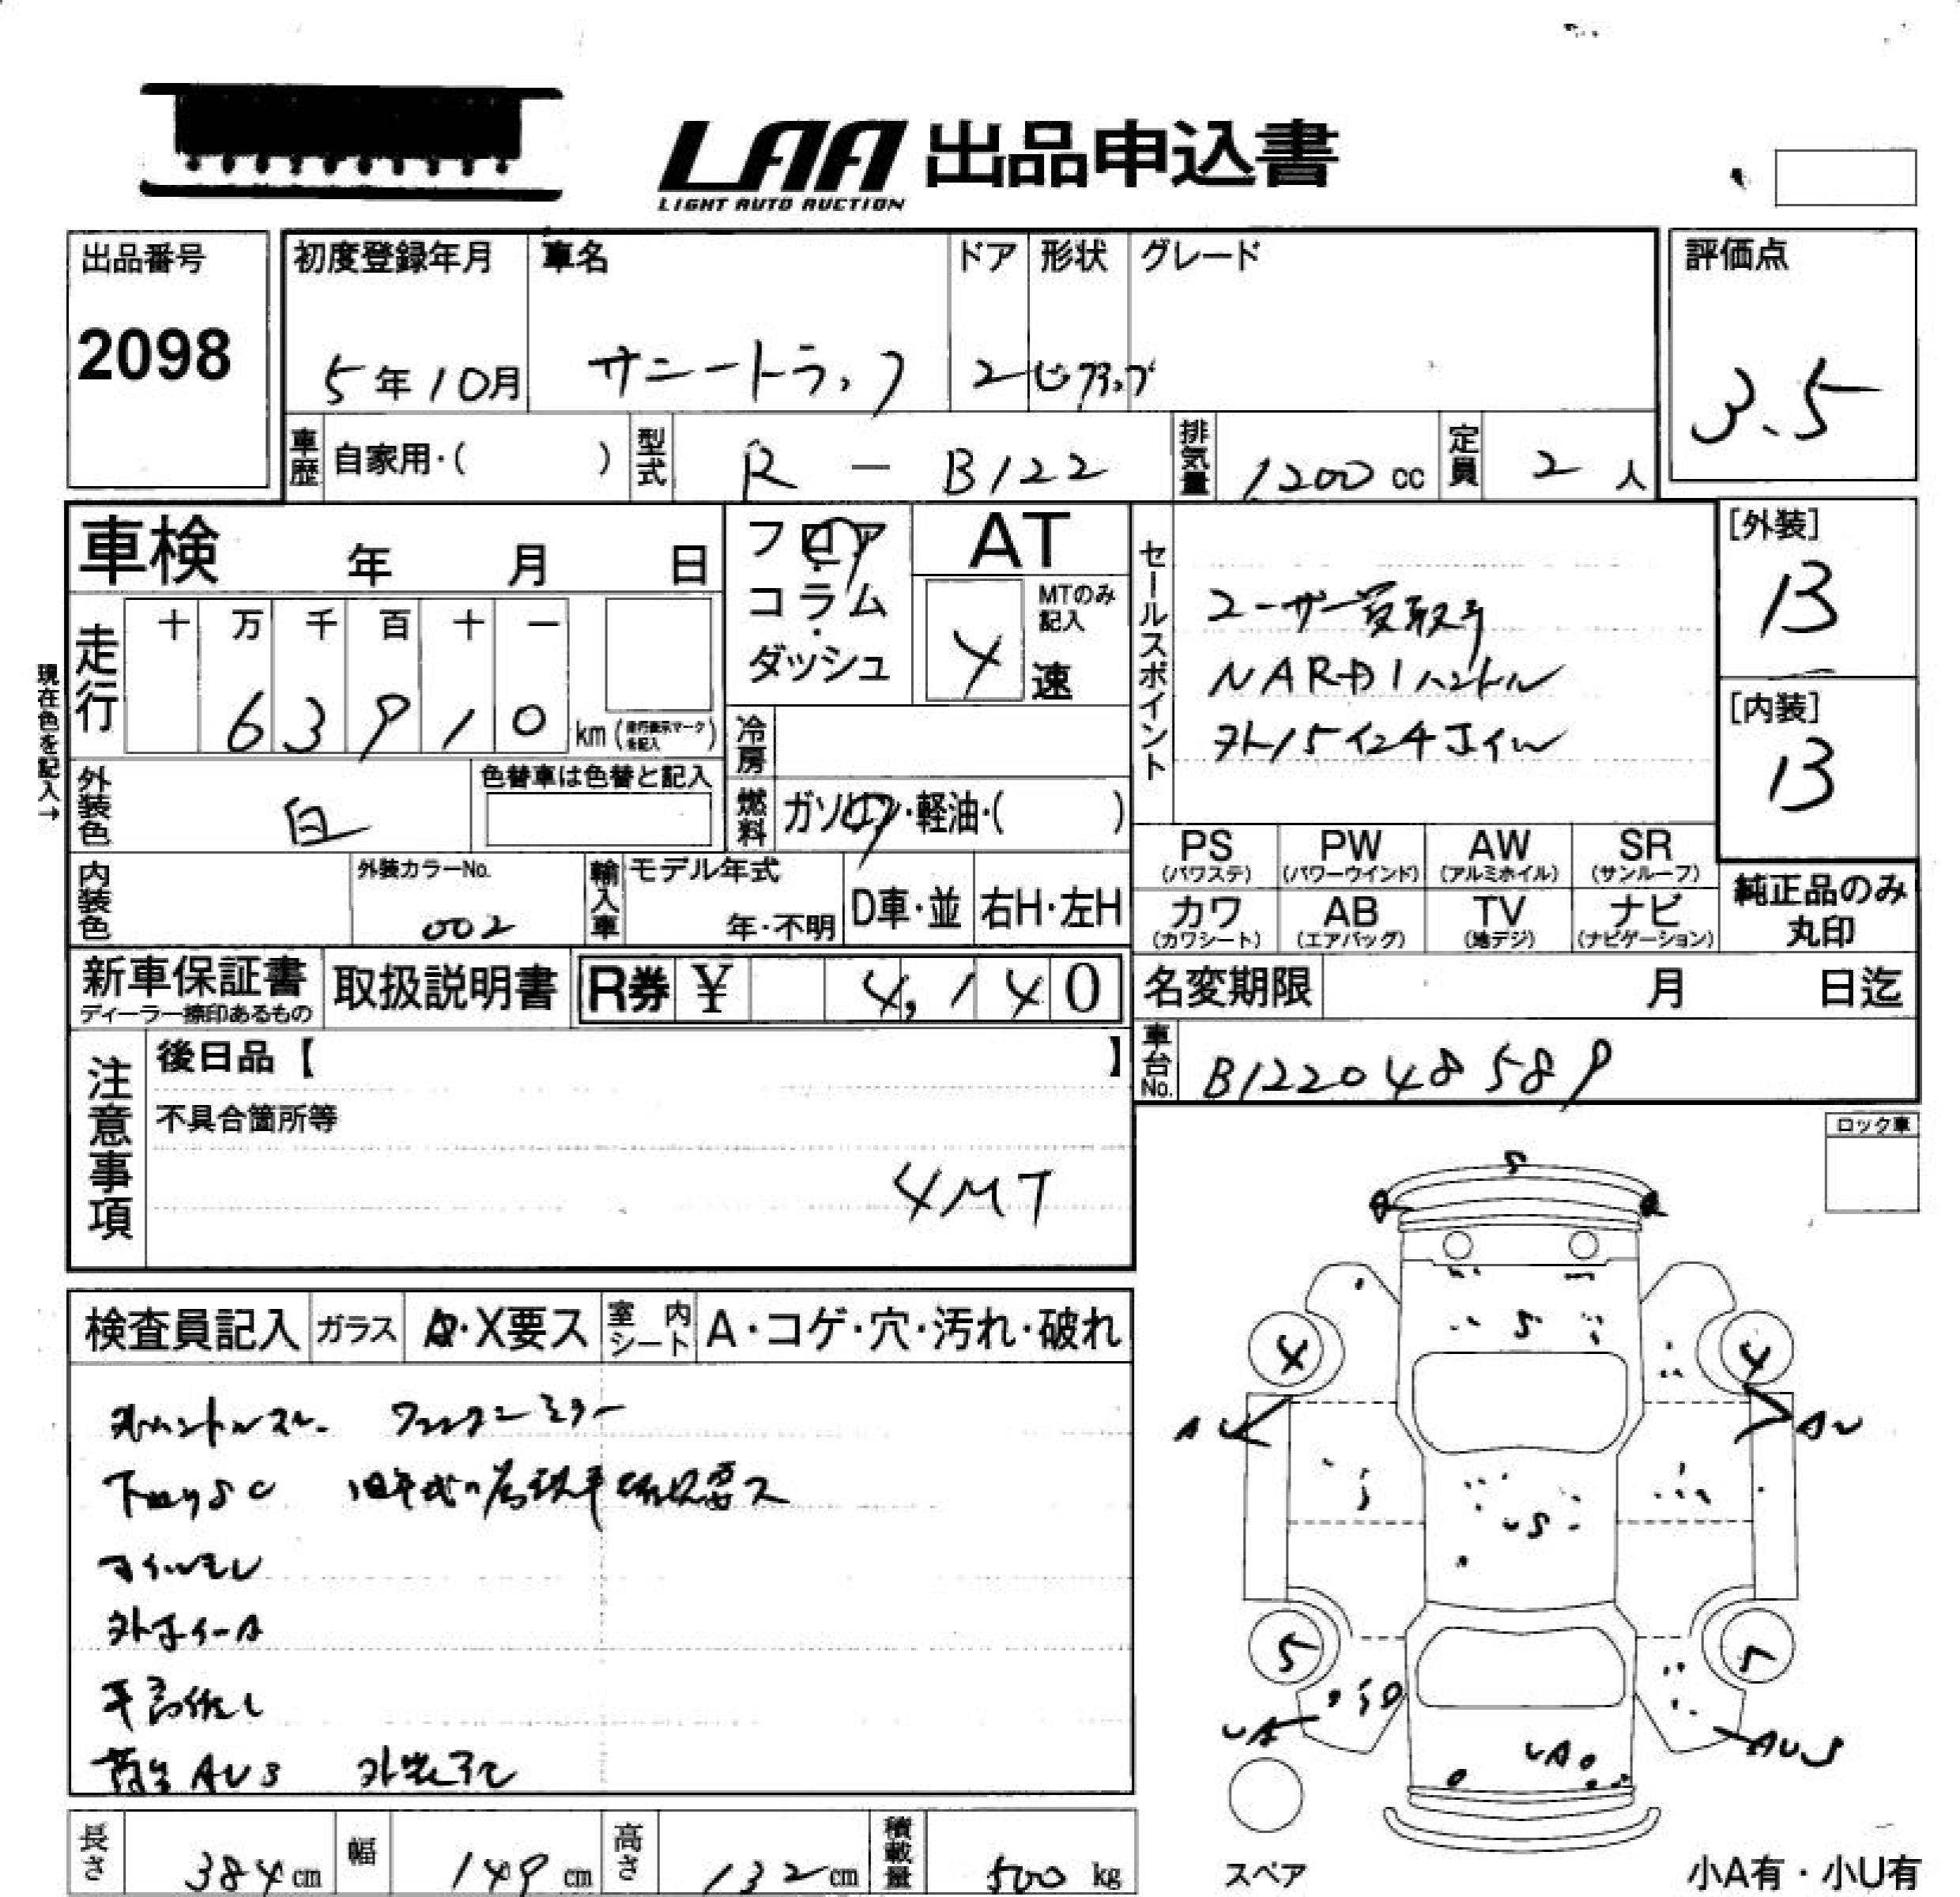 LAA 出品申込書
LIGHT AUTO AUCTION
出品番号
2098
初度登録年月
5年10月
車名
サニートラック
ドア
2
形状
ピックアップ
グレード
評価点
3.5
車歴
自家用・( )
型式
R - B122
排気量
1200 cc
定員
2 人
車検 年 月 日
フロア・コラム・ダッシュ
AT
MTのみ記入
4 速
セールスポイント
ユーザー買取り
NARDIハンドル
外15インチAW
[外装]
13
[内装]
13
現在色を記入→
走行
十 万 千 百 十 一
6 3 9 1 0 km
冷房
外装色
白
色替車は色替と記入
燃料
ガソリン・軽油・( )
PS (パワステ)
PW (パワーウインド)
AW (アルミホイル)
SR (サンルーフ)
カワ (カワシート)
AB (エアバッグ)
TV (地デジ)
ナビ (ナビゲーション)
純正品のみ丸印
内装色
外装カラーNo.
002
輸入車
モデル年式
年・不明
D車・並
右H・左H
新車保証書
取扱説明書
R券 ¥ 4,140
名変期限 月 日迄
車台No.
B122048589
注意事項
後日品【 】
不具合箇所等
4MT
ロック車
検査員記入
ガラス
A・X要ス
室内シート
A・コゲ・穴・汚れ・破れ
外ハンドル フェンダーミラー
下回りSC
オイルモレ
車高低し
荷台 AU3
S
S
4
4
AU
AU
US
5
5
UA
AUS
UA
長さ
384 cm
幅
149 cm
高さ
132 cm
積載量
500 kg
スペア
小A有・小U有